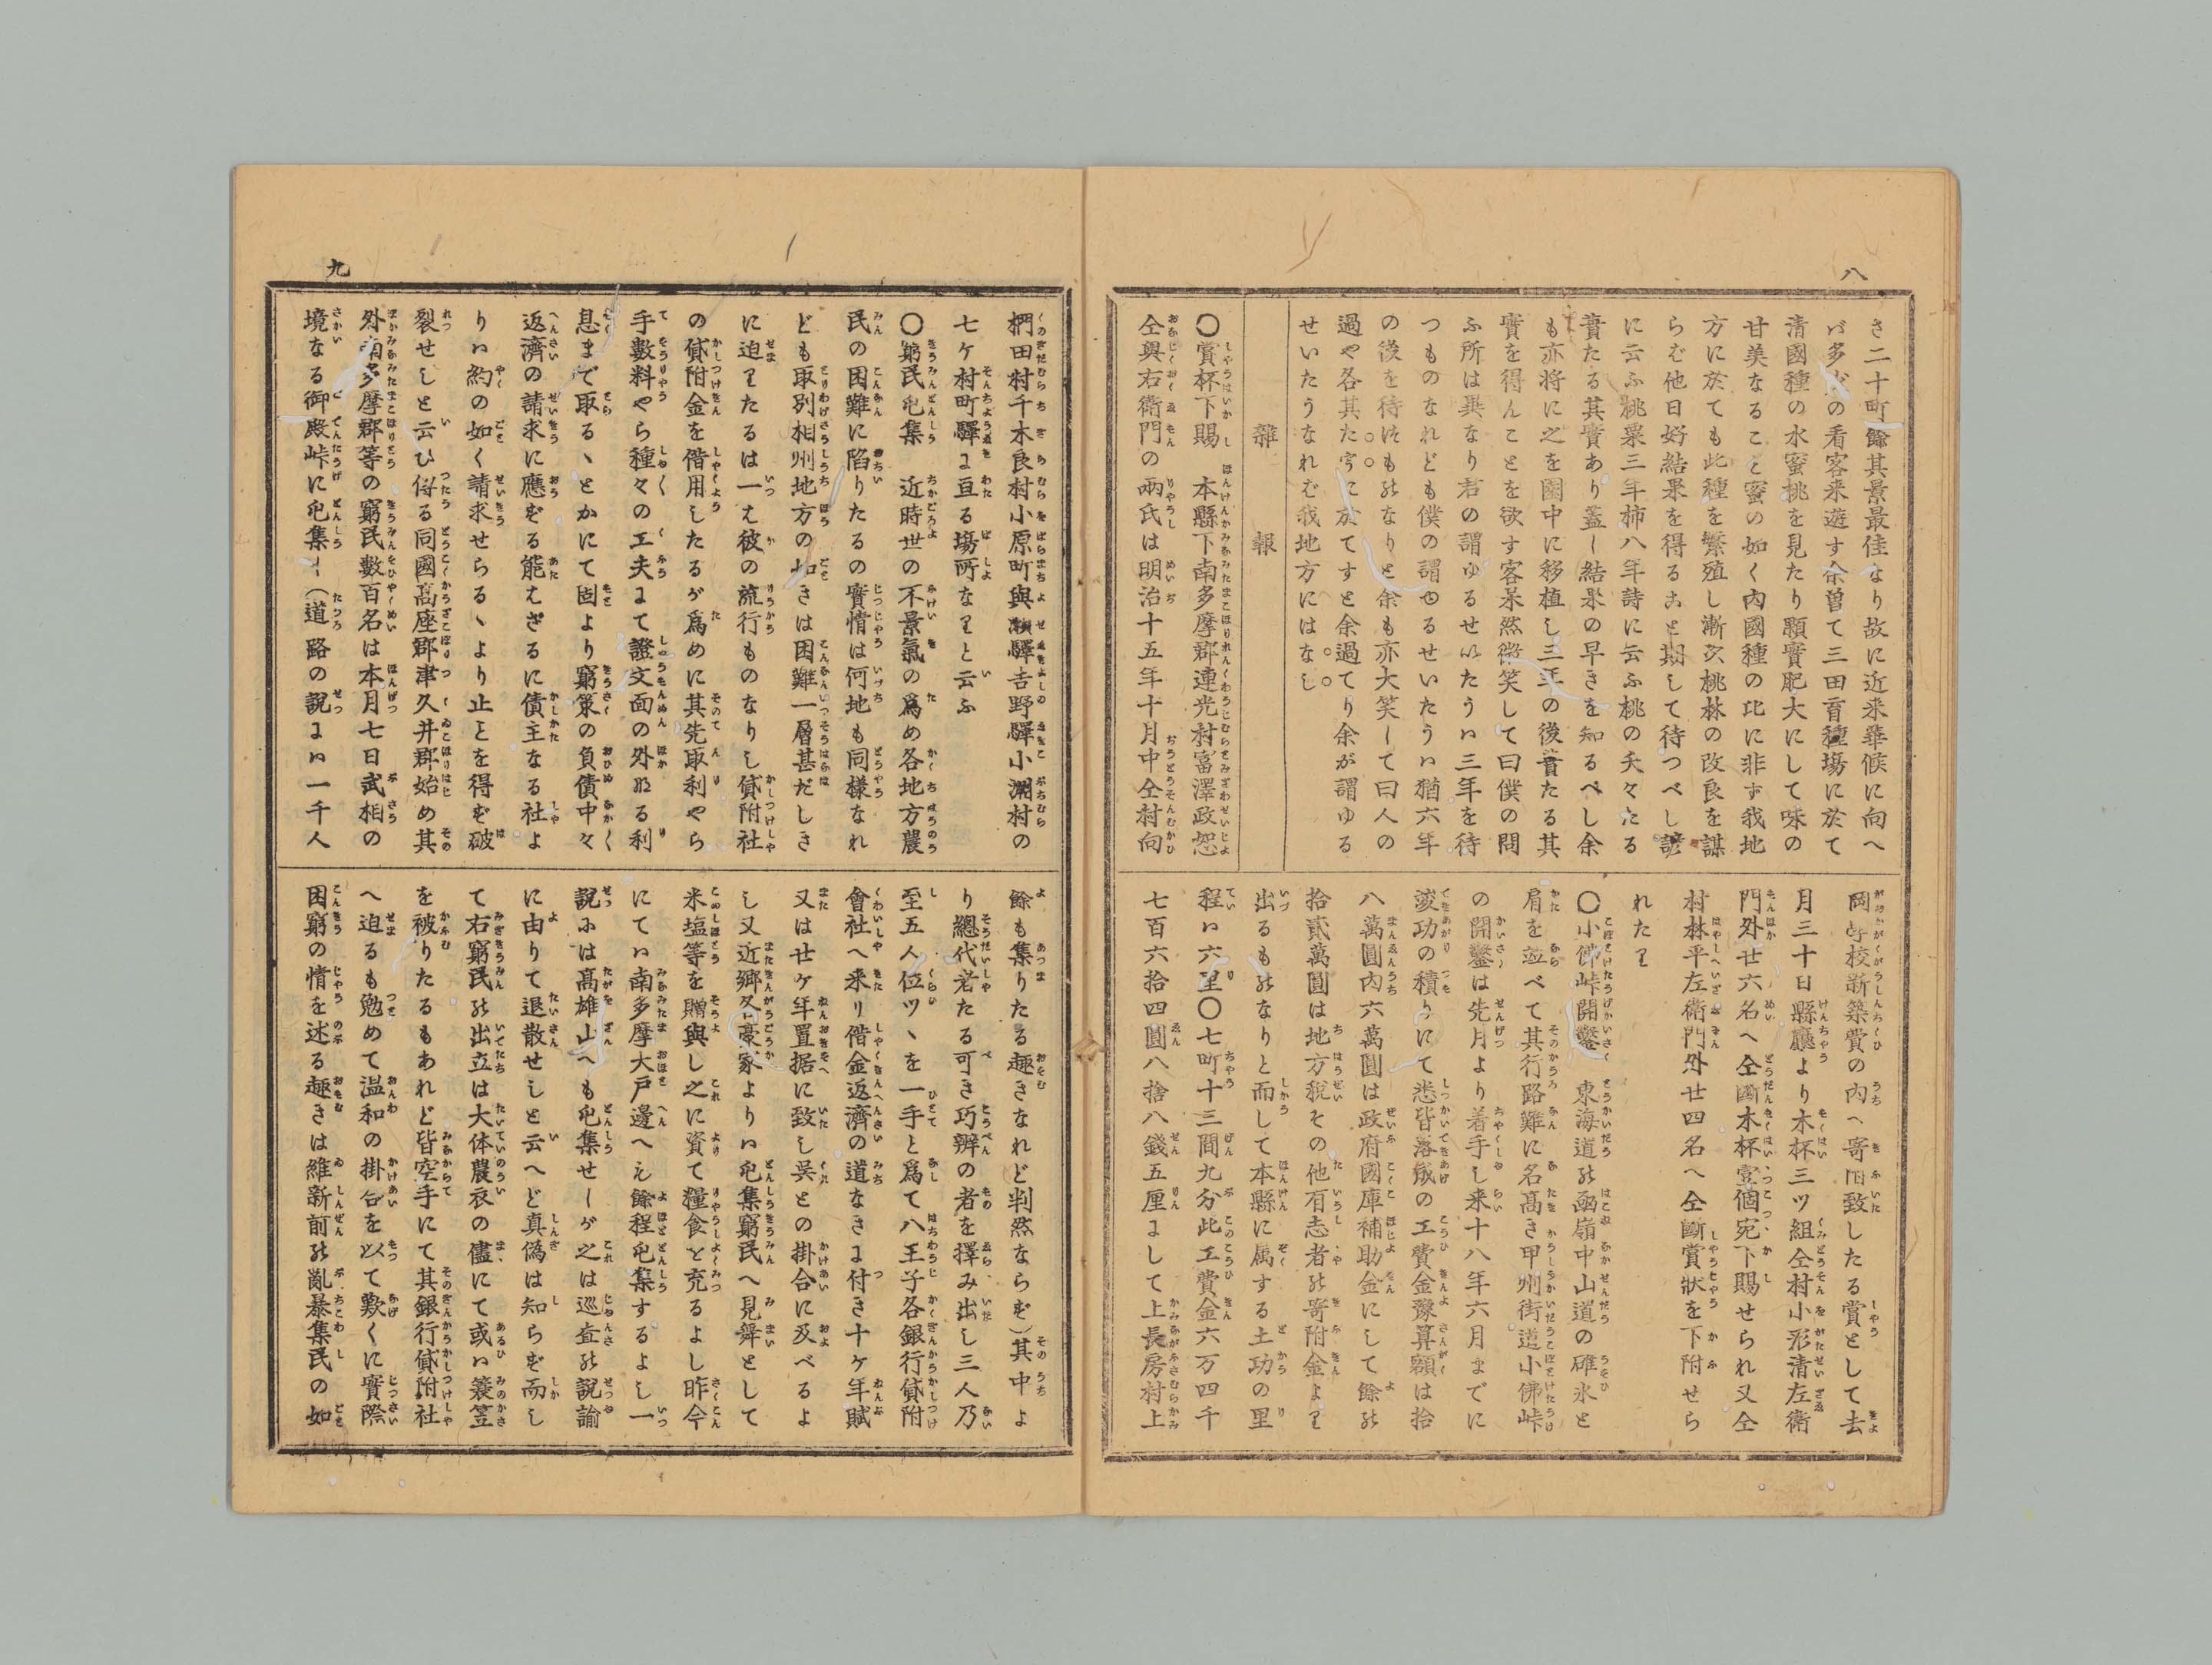 八
さ二十町餘其景最佳なり故に近来華候に向へ
バ多少の看客来遊す余曾て三田育種塲に於て
清國種の水蜜桃を見たり顆實肥大にして味の
甘美なること蜜の如く内國種の比に非ず我地
方に於ても此種を繁殖し漸次桃林の改良を謀
らむ他日好結果を得ること期して待つべし諺
に云ふ桃栗三年柿八年詩に云ふ桃の夭々たる
蕡たる其實あり蓋し結果の早きを知るべし余
も亦将に之を園中に移植し三年の後蕡たる其
實を得んことを欲す客呆然微笑して曰僕の問
ふ所は異なり君の謂ゆるせいたうハ三年を待
つものなれども僕の謂ゆるせいたうハ猶六年
の後を待住ものなりと余も亦大笑して曰人の
過や各其た宇に於てすと余過てり余が謂ゆる
せいたうなれむ我地方にはなし
雜報
〇賞杯下賜　本縣下南多摩郡連光村富澤政恕
仝奥右衛門の兩氏は明治十五年十月中仝村向
岡学校新築費の内へ寄附致したる賞として去
月三十日縣廳より木杯三ツ組仝村小形清左衛
門外廿六名へ仝斷木杯壹個宛下賜せられ又仝
村林平左衛門外廿四名へ仝斷賞狀を下附せら
れたり
〇小佛峠開鑿　東海道の凾嶺中山道の碓氷と
肩を並べて其行路難に名髙き甲州街道小佛峠
の開鑿は先月より着手し来十八年六月までに
竣功の積りにて悉皆落成の工費金豫算額は拾
八萬圓内六萬圓は政府國庫補助金にして餘の
拾貳萬圓は地方税その他有志者の寄附金より
出るものなりと而して本縣に属する土功の里
程ハ六里〇七町十三間九分此工費金六万四千
七百六拾四圓八捨八錢五厘にして上長房村上
九
椚田村千木良村小原町與瀬驛吉野驛小渕村の
七ケ村町驛に亘る塲所なりと云ふ
〇窮民屯集　近時世の不景氣の爲め各地方農
民の困難に陷りたるの實情は何地も同樣なれ
ども取別相州地方の如きは困難一層甚だしき
に迫りたるは一え彼の流行ものなりし貸附社
の貸附金を借用したるが爲めに其先取利やら
手數料やら種々の工夫にて證文面の外なる利
息まで取るゝとかにて固より窮策の負債中々
返濟の請求に應ずる能えざるに債主なる社よ
りハ約の如く請求せらるゝより止とを得ず破
裂せしと云ひ傳る同國髙座郡津久井郡始め其
外南多摩郡等の窮民數百名は本月七日武相の
境なる御殿峠に屯集し（道路の説にハ一千人
餘も集りたる趣きなれど判然ならず）其中よ
り總代者たる可き巧辨の者を擇み出し三人乃
至五人位ツヽを一手と爲て八王子各銀行貸附
會社へ来り借金返濟の道なきに付き十ケ年賦
又は廿ケ年置据に致し呉との掛合に及べるよ
し又近郷各豪家よりハ屯集窮民へ見舞として
米塩等を贈與し之に資て糧食と充るよし昨今
にてハ南多摩大戸邊へえ餘程屯集するよし一
説ふは髙雄山へも屯集せしが之は巡査の説諭
に由りて退散せしと云へど真僞は知らず而し
て右窮民の出立は大体農衣の儘にて或ハ簑笠
を被りたるもあれど皆空手にて其銀行貸附社
へ迫るも勉めて温和の掛合を以て歎くに實際
困窮の情を述る趣きは維新前の亂暴集民の如